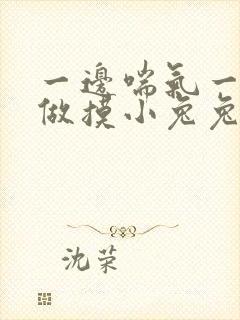 一邊喘氣一
做摸小兔兔
沈荣